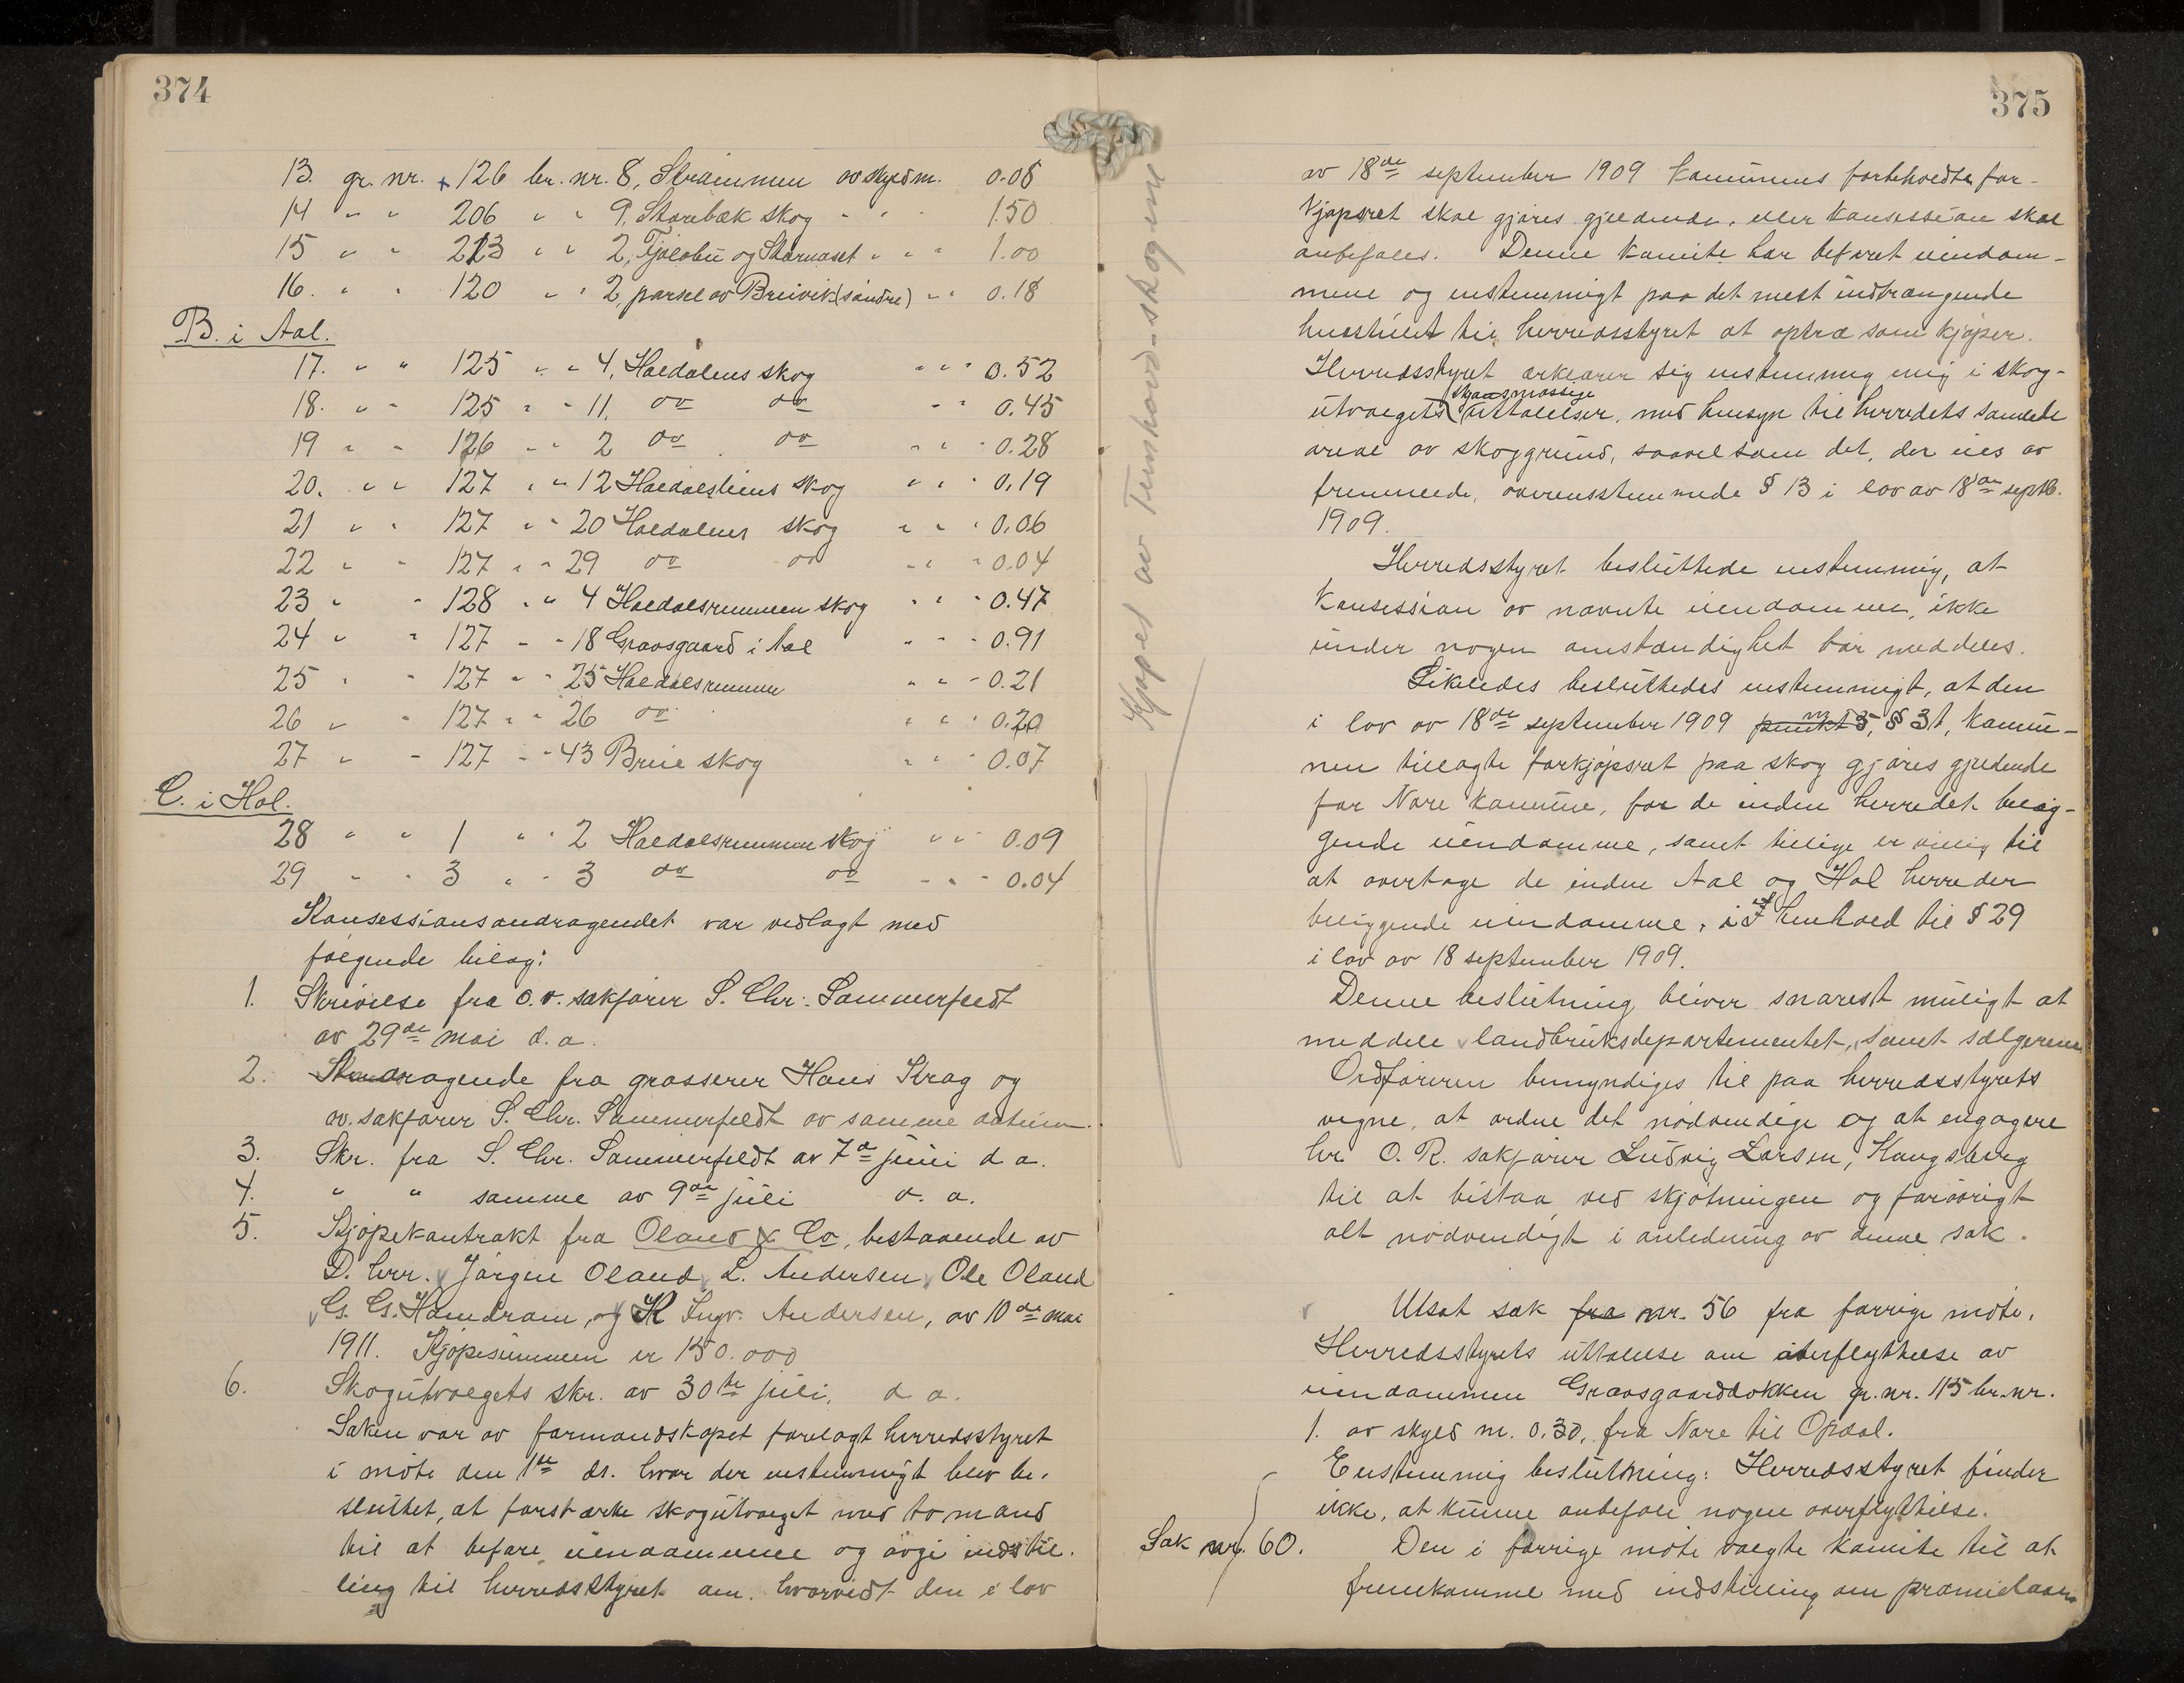 374
13. gr. nr. 126 br. nr. 8, Strømmen av skyld m. 0.08
14 " " 206 " " 9, Storebæk skog " " 1.50
15 " " 213 " " 2, Fjøslobu og " " " 1.00
16. " " 120 " " 2, parsel av Breivik (søndre) " " 0.18
B. i Aal.
17. " " 125 " " 4, Haldalens skog " " " 0.52
18. " " 125 " " 11, do do " " 0.45
19 " " 126 " " 2 do do " " " 0.28
20. " " 127 " " 12 Haldalsliens skog " " " 0.19
21 " " 127 " " 20 Haldalens skog " " " 0.06
22 " " 127 " " 29 do do " " " 0.04
23 " " 128 " " 4 Haldalsremmen skog " " " 0.47
24 " " 127 " " 18 Gravsgaard i Aal " " " 0.91
25 " " 127 " " 25 Haldalsremmen " " " 0.21
26 " " 127 " " 26 do " " " 0.20
27 " " 127 " " 43 Breie skog " " " 0.07
C. i Hol.
28 " " 1 " " 2 Haldalsremmen skog " " 0.09
29 " " 3 " " 3 do do " " " 0.04
Konsessionsandragendet var vedlagt med
følgende bilag:
1. Skrivelse fra o.r. sakfører S. Chr. Sommerfeldt
av 29de mai d. a.
2. Andragende fra grosserer Hans Krag og
ov. sakfører S. Chr. Sommerfeldt av samme datum.
3. Skr. fra S. Chr. Sommerfeldt av 7de juni d. a.
4. " " samme av 9de juli d. a.
5. Kjøpekontrakt fra Oland & Co, bestaaende av
D. hrr. Jørgen Oland, L. Andersen, Ole Oland
G. G. Hamdram, og K Ingv. Andersen, av 10de mai
1911. Kjøpesummen er 150.000
6. Skogutvalgets skr. av 30te juli, d. a.
Saken var av formandskapet forelagt herredsstyret
i møte den 1ste ds. hvor der enstemmigt blev be-
sluttet, at forstærke skogutvalget med to mand
til at befare eiendommene og avgi indstil-
ling til herredsstyret om, hvorvidt den i lov
Kjøpet av Tunhovd-skogene
375
av 18de september 1909 kommunens forbeholdte for-
kjøpsret skal gjøres gjældende, eller konsession skal
anbefales. Denne komite har befaret eiendom-
mene og enstemmigt paa det mest indtrængende
henstillet til herredsstyret at optræ som kjøper.
Herredsstyret erklærer sig enstemmig enig i skog-
utvalgets skjønsmæssige uttalelser, med hensyn til herredets samlede
areal av skoggrund, saavelsom det, der eies av
fremmede, overensstemmende § 13 i lov av 18de septb.
1909.
Herredsstyret besluttede enstemmig, at
konsession av nævnte eiendomme, ikke
under nogen omstændighet bør meddeles.
Likeledes besluttedes enstemmigt, at den
i lov av 18de september 1909 punkt 5, § 31, kommu-
nen tillagte forkjøpsret paa skog gjøres gjeldende
for Nore kommune, for de inden herredet belig-
gende eiendomme, samt tillige er villig til
at overtage de inden Aal og Hol herreder
beliggende eiendomme, i henhold til § 29
i lov av 18 september 1909.
Denne beslutning bliver snarest muligt at
meddele landbruksdepartementet, samt sælgerene
Ordføreren bemyndiges til paa herredsstyrets
vegne, at ordne det nødvendige og at engagere
hr. O. R. sakfører Ludvig Larsen, Kongsberg
til at bistaa ved skjøtningen og forøvrigt
alt nødvendigt i anledning av denne sak.
Utsat sak fra nr. 56 fra forrige møte.
Herredsstyrets uttalelse om overflyttelse av
eiendommen Gravsgaarddokken gr. nr. 115 br. nr.
1. av skyld m. 0.30, fra Nore til Opdal.
Enstemmig beslutning: Herredsstyret finder
ikke, at kunne anbefale nogen overflyttelse.
Sak nr. 60. Den i forrige møte valgte komite til at
fremkomme med indstilling om præmielaan